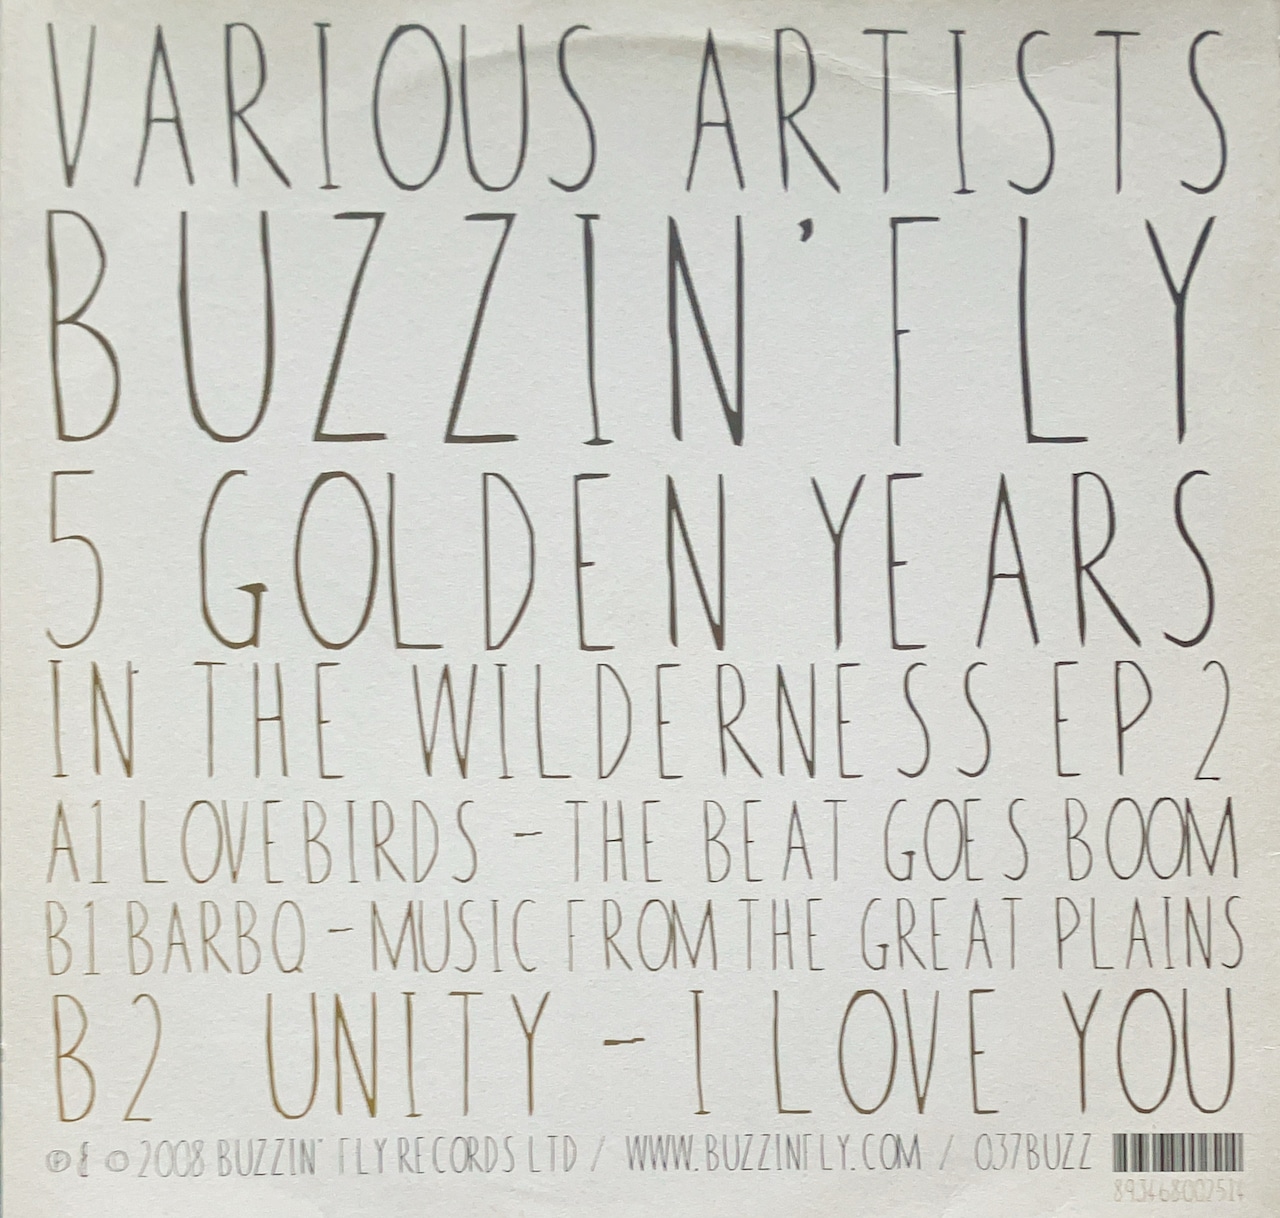 VARIOUS ARTISTS
BUZZIN' FLY
5 GOLDEN YEARS
IN THE WILDERNESS EP 2
A1 LOVEBIRDS - THE BEAT GOES BOOM
B1 BARBQ - MUSIC FROM THE GREAT PLAINS
B2 UNITY - I LOVE YOU
℗ & © 2008 BUZZIN' FLY RECORDS LTD / WWW.BUZZINFLY.COM / 037BUZZ